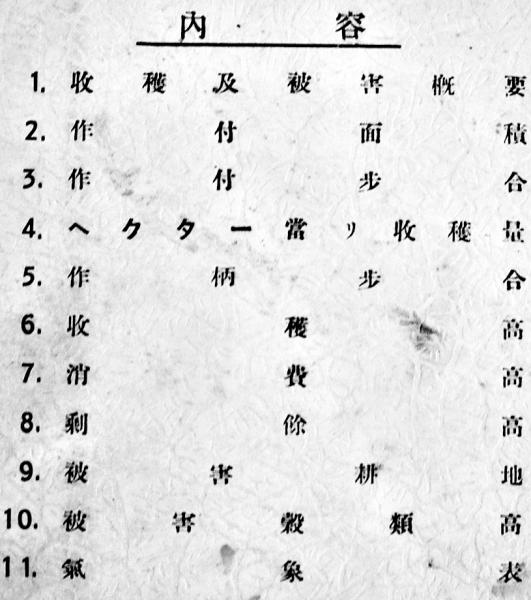 内容
1. 收穫及被害概要
2. 作付面積
3. 作付步合
4. ヘクター當リ收穫量
5. 作柄步合
6. 收穫高
7. 消費高
8. 剩餘高
9. 被害耕地
10. 被害穀類高
11. 氣象表